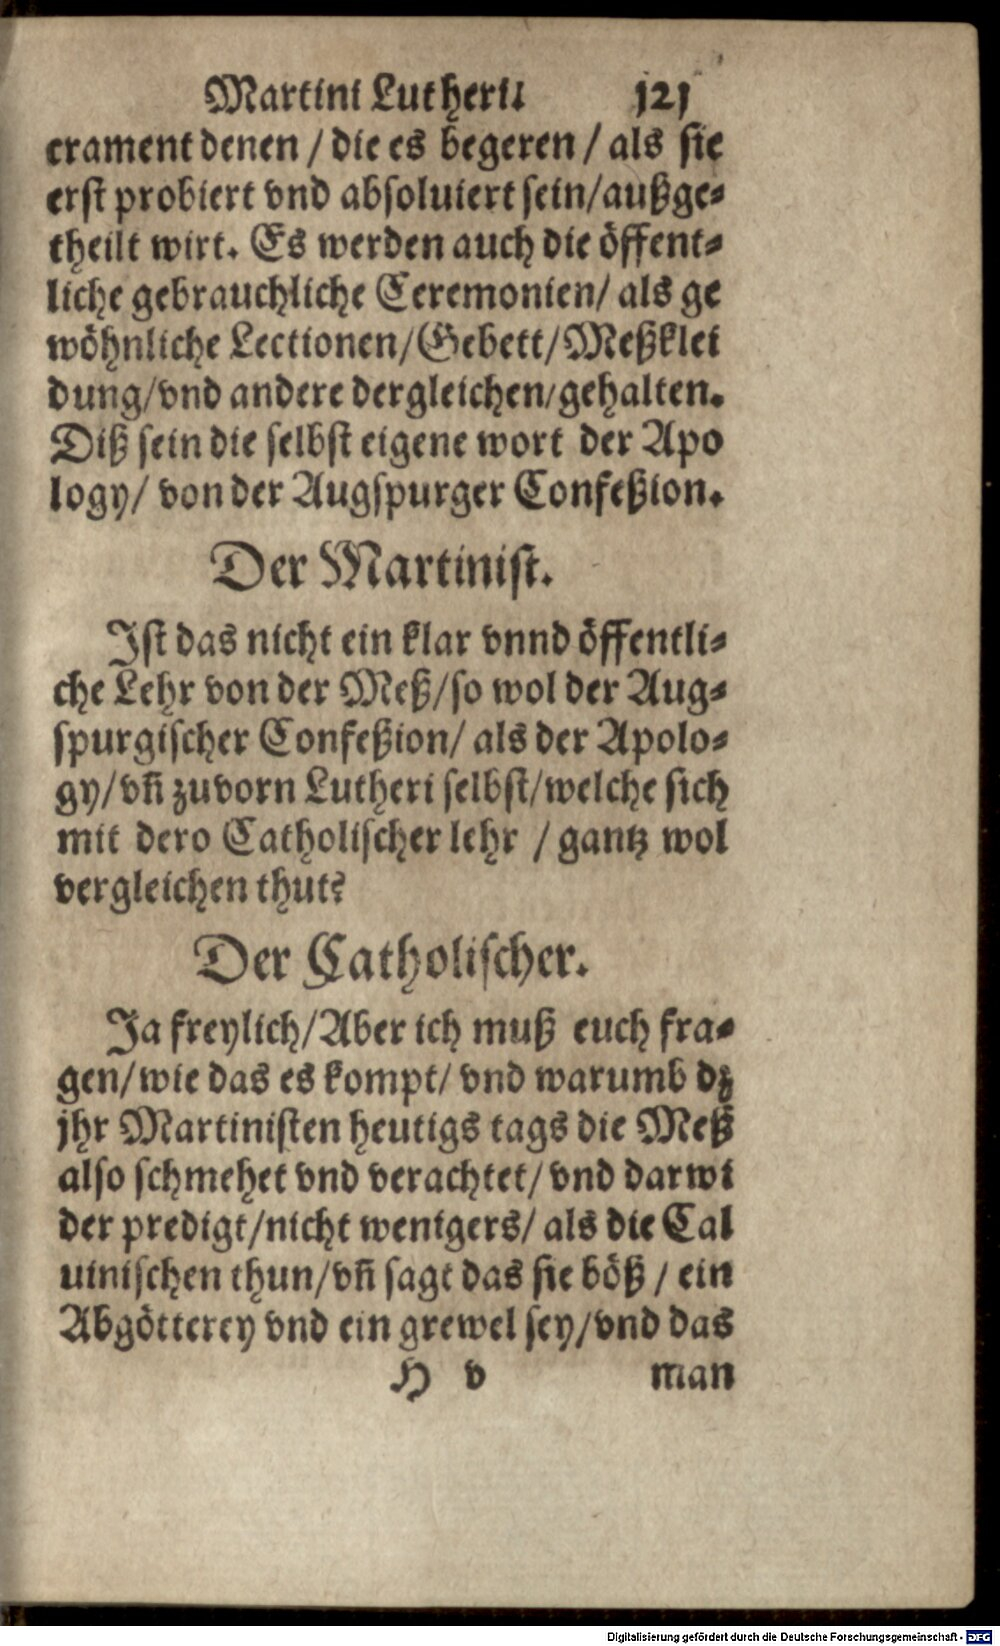 Martini Lutheri. 121
crament denen / die es begeren / als sie
erst probiert vnd absoluiert sein/außge-
theilt wirt. Es werden auch die öffent-
liche gebrauchliche Ceremonien/ als ge
wöhnliche Lectionen/Gebett/Meßklei
dung/vnd andere dergleichen/gehalten.
Diß sein die selbst eigene wort der Apo
logy/ von der Augspurger Confeßion.
Der Martinist.
Ist das nicht ein klar vnnd öffentli-
che Lehr von der Meß/so wol der Aug-
spurgischer Confeßion/ als der Apolo-
gy/vñ zuvorn Lutheri selbst/welche sich
mit dero Catholischer lehr / gantz wol
vergleichen thut?
Der Catholischer.
Ja freylich/Aber ich muß euch fra-
gen/wie das es kompt/ vnd warumb dz
jhr Martinisten heutigs tags die Meß
also schmehet vnd verachtet/ vnd darwi
der predigt/nicht wenigers/ als die Cal
uinischen thun/vñ sagt das sie böß / ein
Abgötterey vnd ein grewel sey/vnd das
H v man
Digitalisierung gefördert durch die Deutsche Forschungsgemeinschaft - DFG